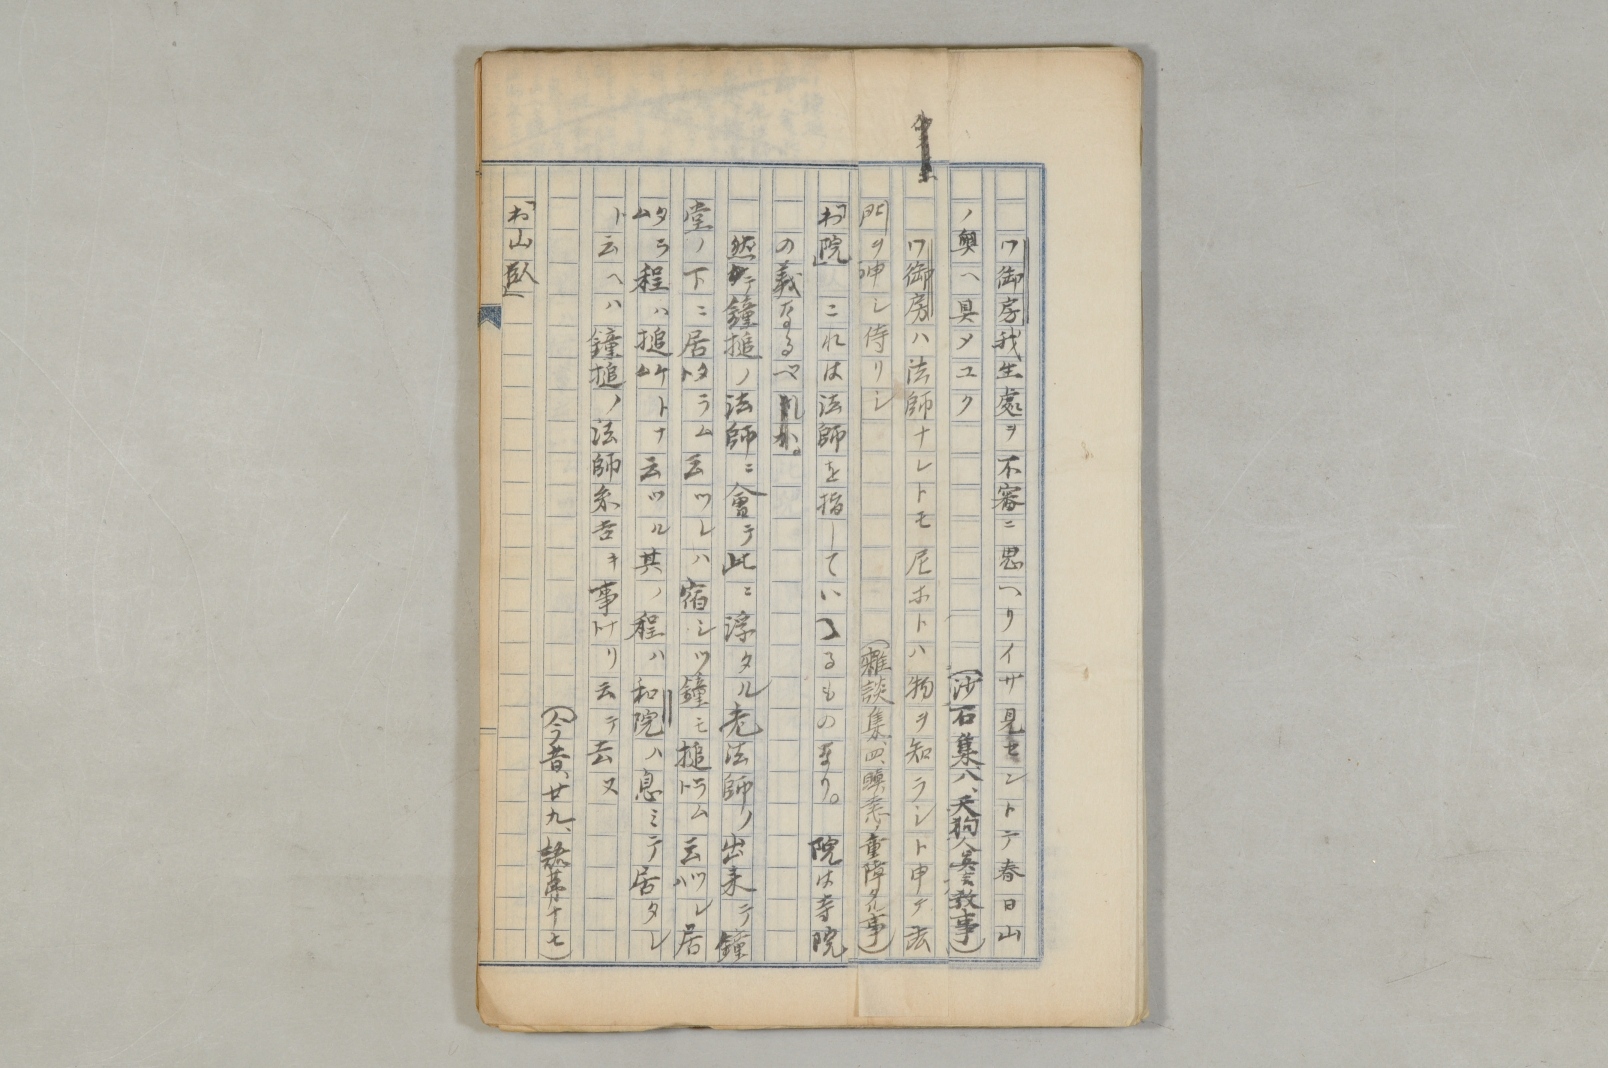 ワ御房我生處ヲ不審ニ思ヘリイサ見セントテ春日山
ノ奥ヘ具メユク
(沙石集八、天狗人真言教事)
ワ御房ハ法師ナレトモ尼ホトハ物ヲ知ラシト申テ法
門ヲ申シ侍リシ
(雜談集四、瞋恚ノ重障タル事)
わ「院」 これは法師を指していへるものなり。院は寺院
の義なるべし。
然テ鐘搥ノ法師ニ會テ此ニ浮タル老法師ノ出来テ鐘
堂ノ下ニ居タラムト云ツレハ宿シツ鐘モ搥ラムト云ツレハ居
タラム程ハ搥ケトナム云ツル其ノ程ハ和院ハ息ミテ居タレ
ト云ヘハ鐘搥ノ法師糸吉キ事ナリト云テ云ヌ
(今昔、廿九、語第十七)
わ「山臥」